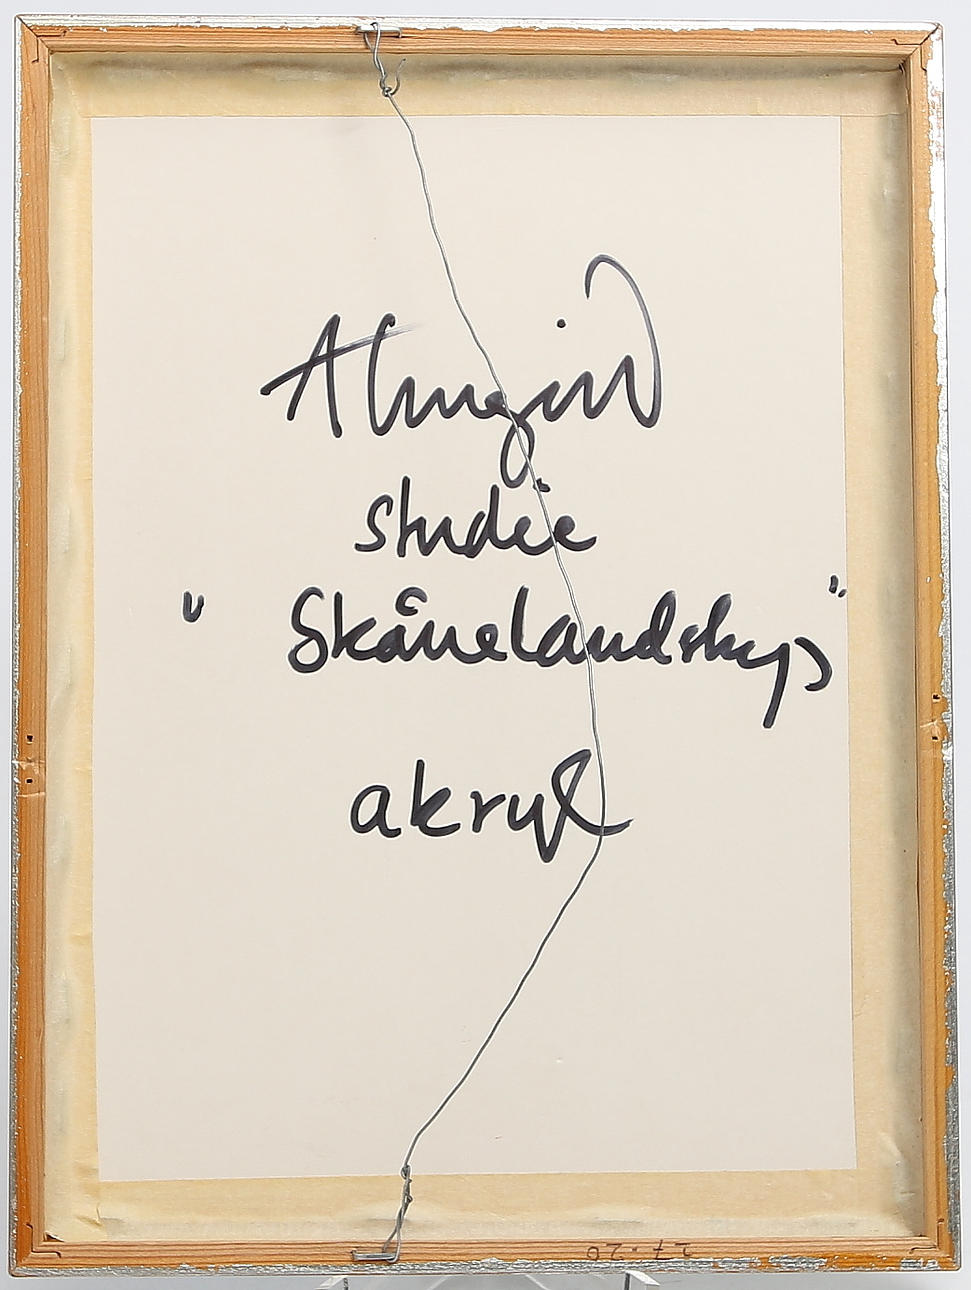 Almgird
studie
" Skånelandskap "
akryl
27.20